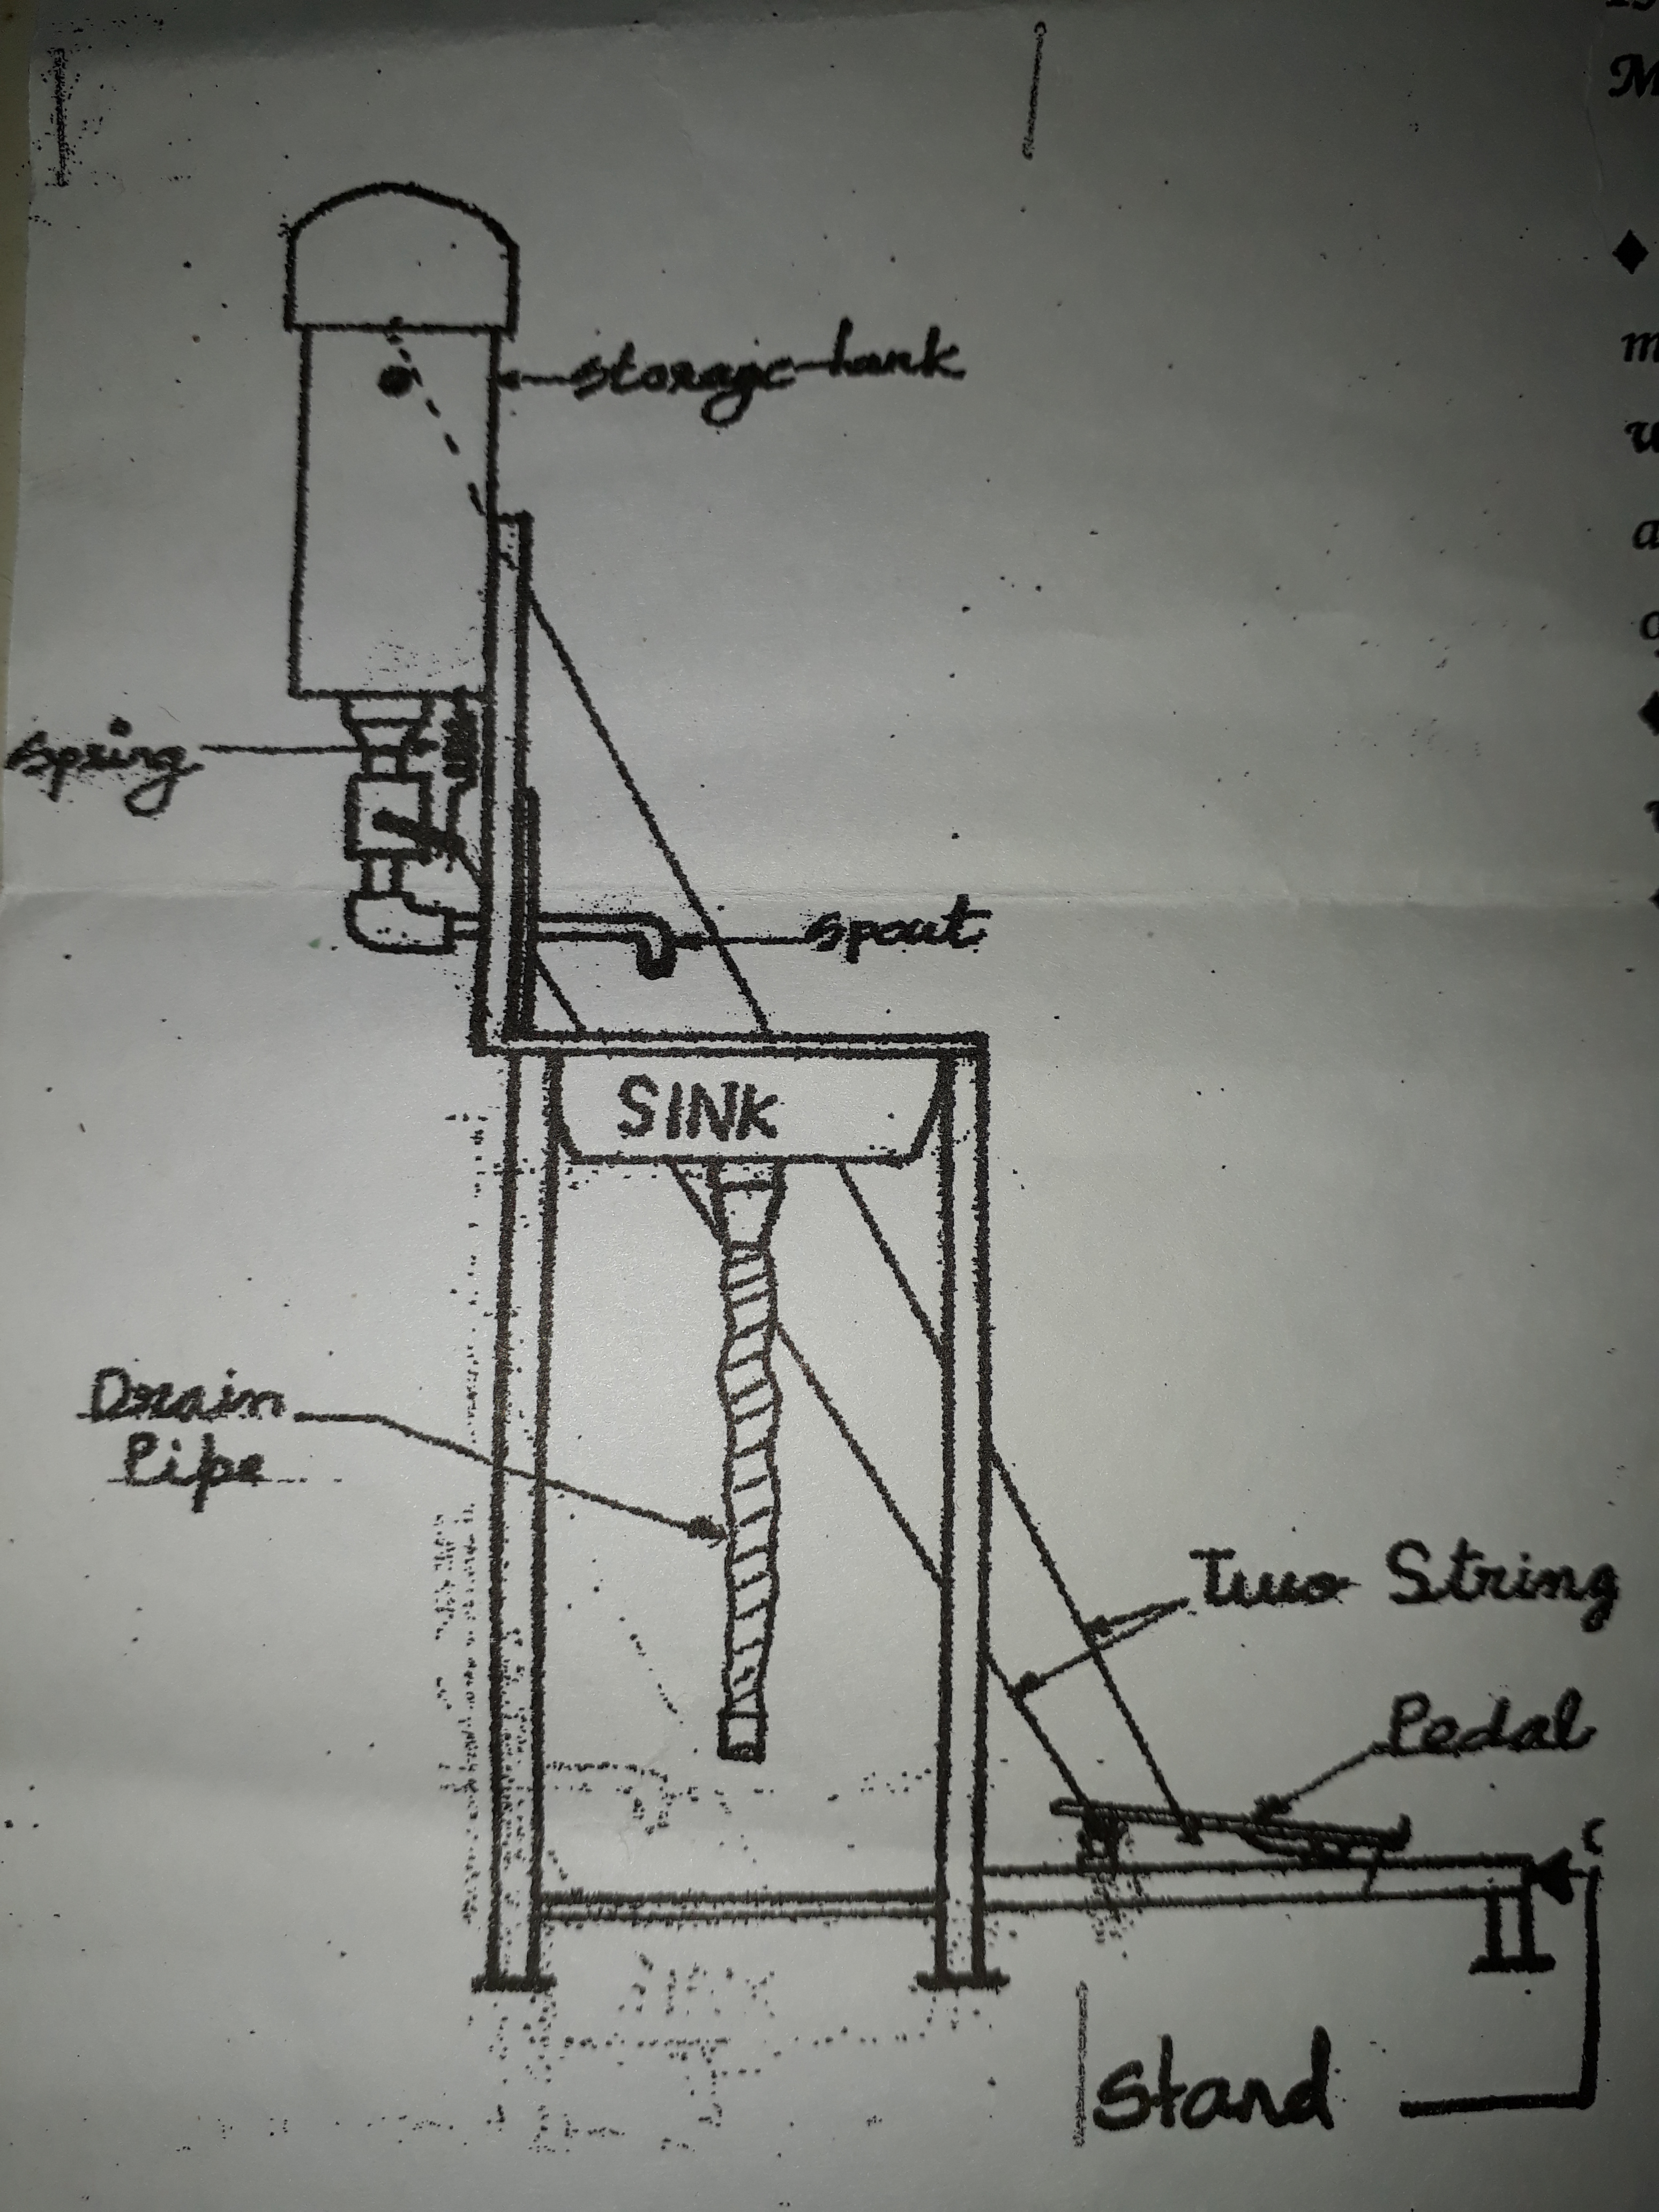 storage tank
spring
spout
SINK
Drain
Pipe
Two String
Pedal
Stand